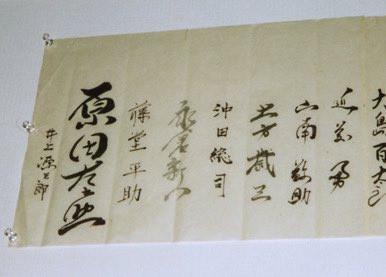 近藤勇
山南敬助
土方歳三
沖田総司
永倉新八
藤堂平助
原田左之助
井上源三郎